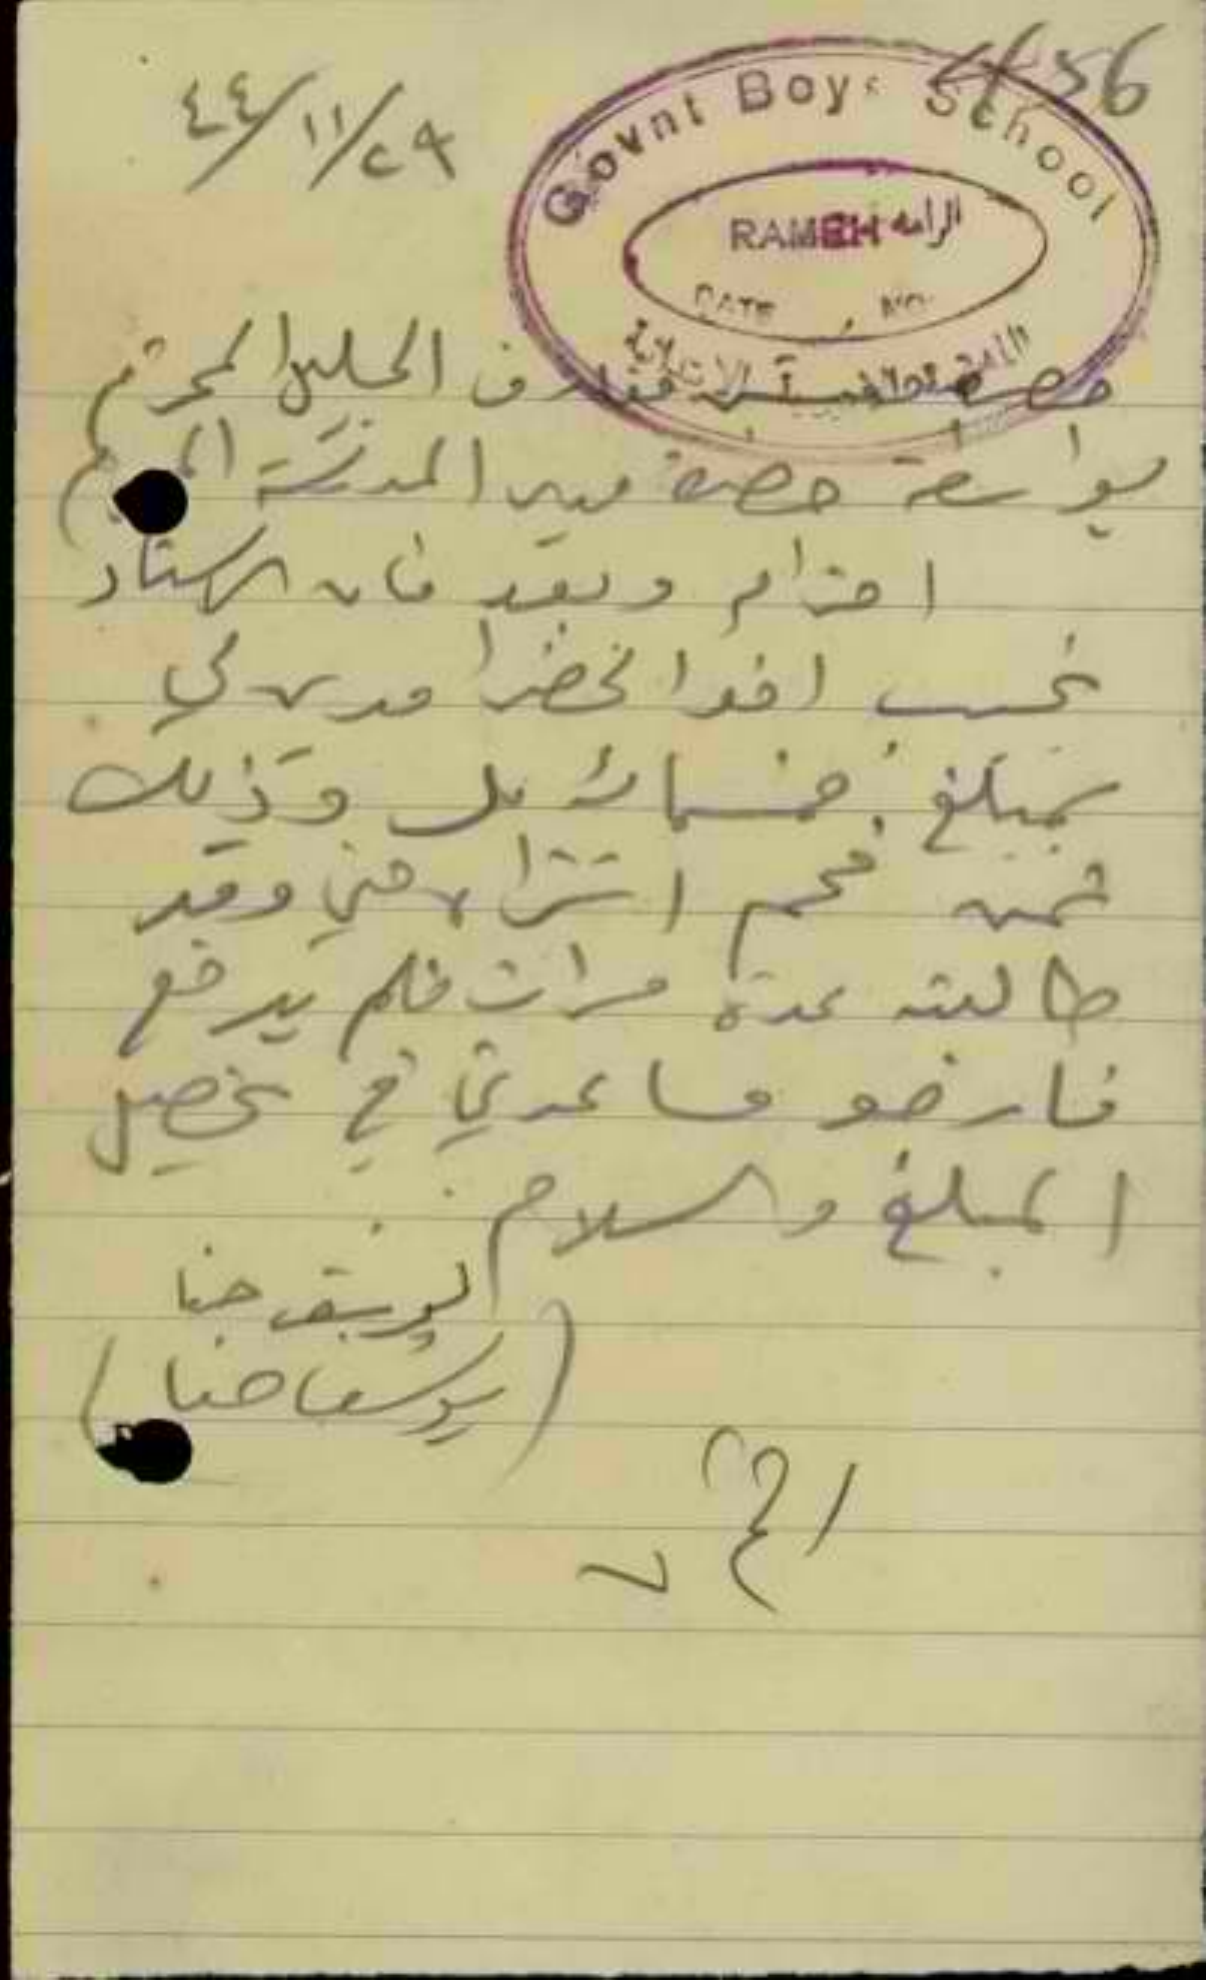 4/56
٤٤/١١/٢٩
Govnt Boys School
RAMEH الرامه
DATE NO.
حضرة مفتش معارف الجليل المحترم
بواسطة حضرة مدير المدرسة
احترام وبعد فان الاستاذ
نجيب افدا لخضرا مديون لي
بمبلغ خمسمائة مل وذلك
ثمن فحم اشتراه مني وقد
طالبته عدة مرات فلم يدفع
فارجو مساعدتي في تحصيل
المبلغ والسلام
يوسف حنا
(يوسف حنا)